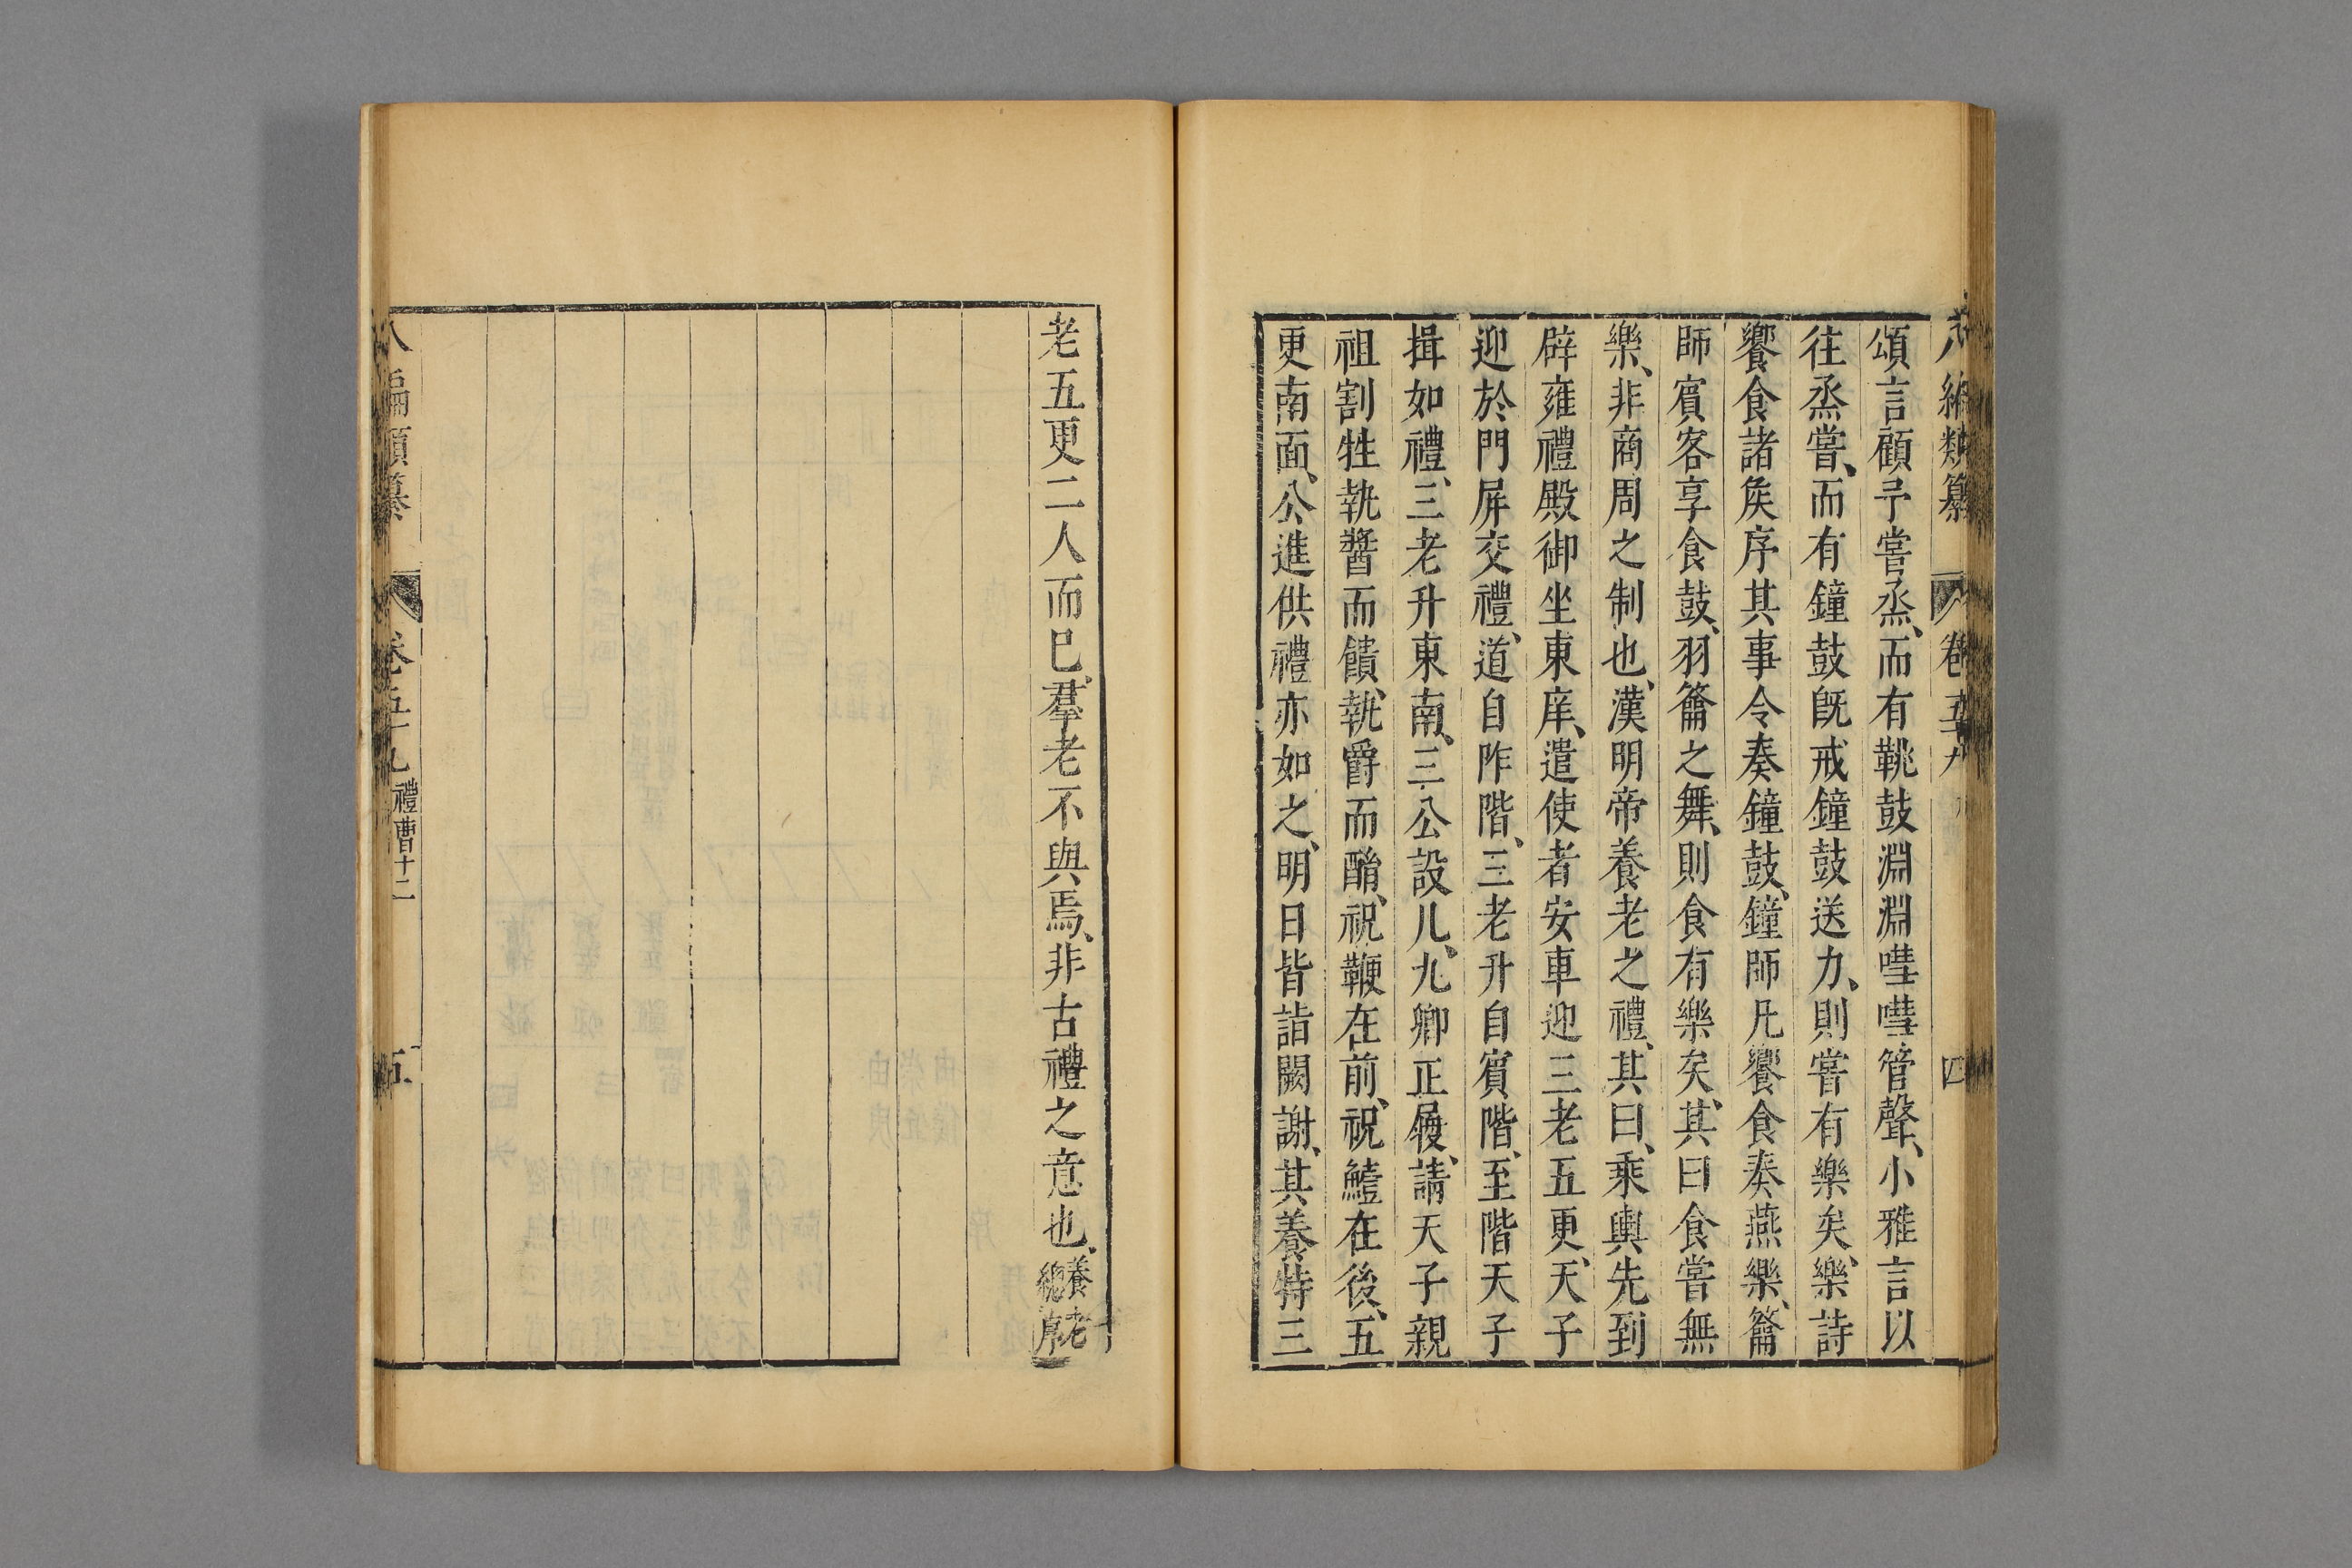 八編類纂 卷五十九 四
頌言顧予嘗烝、而有鞉鼓淵淵嘒嘒管聲、小雅言以
往烝嘗、而有鐘鼓旣戒鐘鼓送力、則嘗有樂矣、樂詩
饗食諸侯序其事令奏鐘鼓、鐘師凡饗食奏燕樂、籥
師賓客享食鼓、羽籥之舞、則食有樂矣、其曰食嘗無
樂、非商周之制也、漢明帝養老之禮、其曰、乘輿先到
辟雍禮殿御坐東庠、遣使者安車迎三老五更、天子
迎於門屏交禮、道自阼階、三老升自賓階、至階天子
揖如禮、三老升東南、三公設几、九卿正履、請天子親
祖割牲執醬而饋、執爵而酳、祝鞭在前、祝鱧在後、五
更南面、公進供禮亦如之、明日皆詣闕謝、其養特三
老五更二人而已、羣老不與焉、非古禮之意也、養老
總序
八編類纂 卷五十九 禮曹十二 五